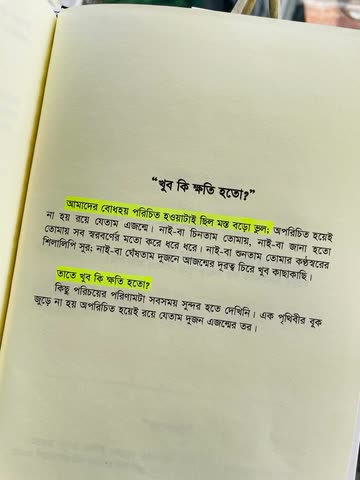 “খুব কি ক্ষতি হতো?”
আমাদের বোধহয় পরিচিত হওয়াটাই ছিল মস্ত বড়ো ভুল; অপরিচিত হয়েই
না হয় রয়ে যেতাম এজন্মে। নাই-বা চিনতাম তোমায়, নাই-বা জানা হতো
তোমায় সব স্বরবর্ণের মতো করে ধরে ধরে। নাই-বা শুনতাম তোমার কণ্ঠস্বরের
শিলালিপি সুর; নাই-বা ঘেঁষতাম দুজনে আজন্মের দূরত্ব চিরে খুব কাছাকাছি।
তাতে খুব কি ক্ষতি হতো?
কিছু পরিচয়ের পরিণামটা সবসময় সুন্দর হতে দেখিনি। এক পৃথিবীর বুক
জুড়ে না হয় অপরিচিত হয়েই রয়ে যেতাম দুজন এজন্মের তর।